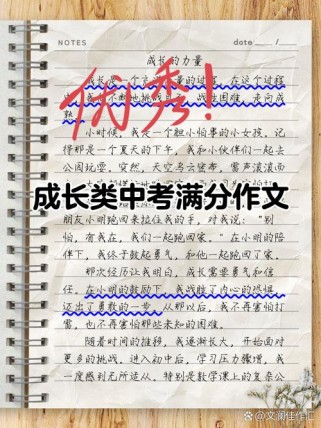 NOTES
date
成长的力量
成长是一个充满力量的过程，在这个过程
战胜困难，走向成
优秀！
小时候，我是一个胆小怕事的小女孩，记
得那是一个夏天的下午，我和小伙伴们一起去
公园玩耍，突然，天空乌云密布，雷声滚滚而
成长类中考满分作文
朋友小明跑回来拉住我的手，对我说："别
怕，有我在，我们一起跑回家。"在小明的陪
伴下，我终于鼓起勇气，和他一起跑回了家。
那次经历让我明白，成长需要勇气和信
任。在小明的鼓励下，我战胜了内心的恐惧，
迈出了勇敢的一步。从那以后，我不再害怕打
雷，也不再害怕那些未知的困难。
随着时间的推移，我逐渐长大，开始面对
更多的挑战。进入初中后，学习压力骤增，我
一度感到无所适从。特别是数学课上的复杂公
@文澜佳作汇